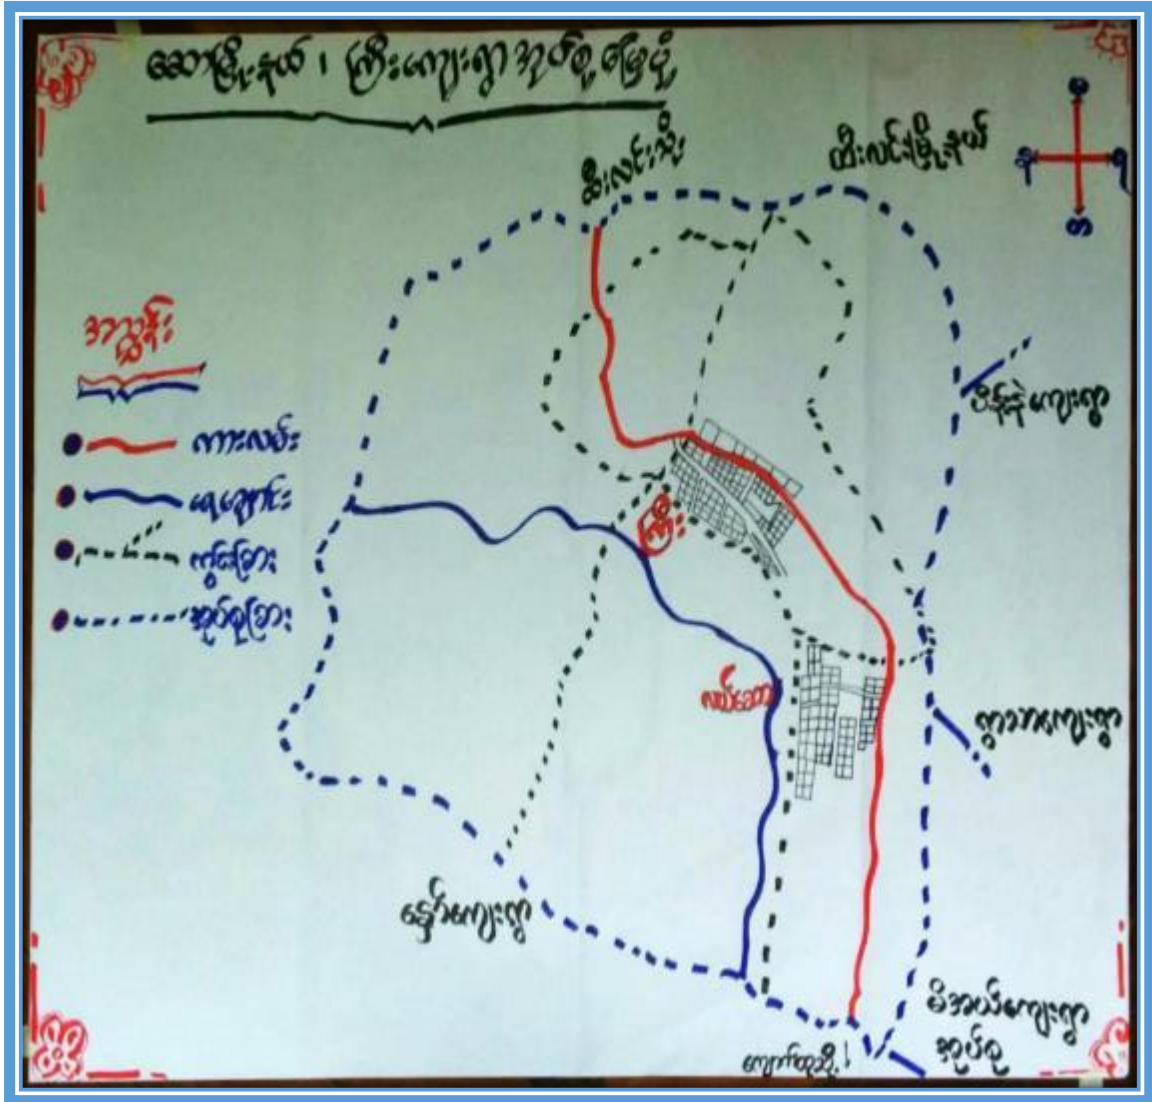 ဆောမြို့နယ်၊ ကြီးကျေးရွာအုပ်စု မြေပုံ
ထီးလင်းသို့
ထီးလင်းမြို့နယ်
အညွှန်း
ကားလမ်း
ရေချောင်း
ကွင်းခြား
အုပ်စုခြား
ကြီး
ကျေးရွာ
ကျေးရွာ
ကျေးရွာ
မိအယ်ကျေးရွာ
အုပ်စု
ကျောက်ထုသို့